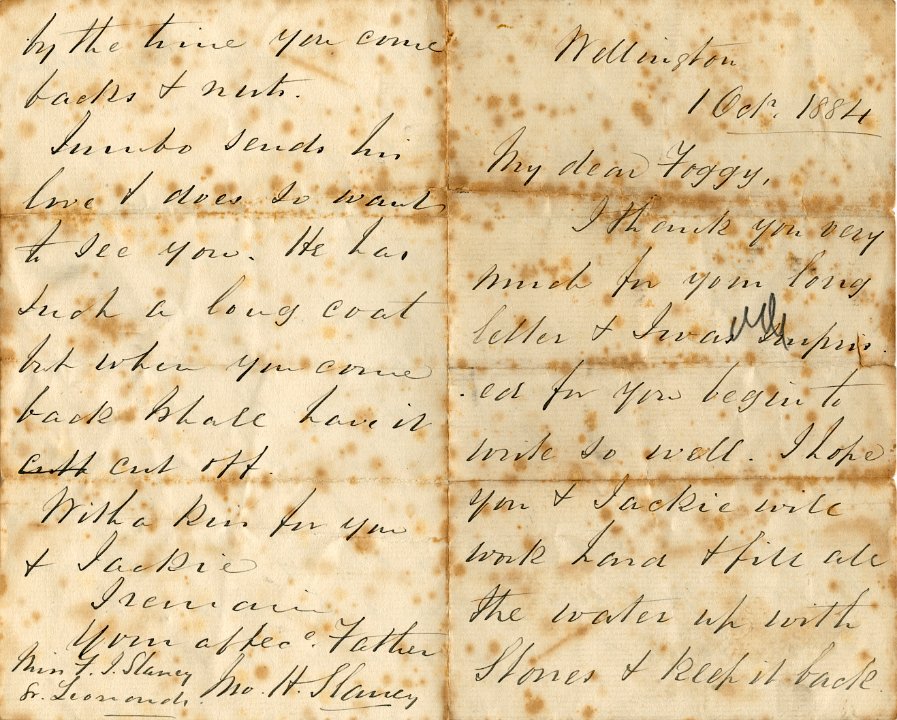 Wellington
1 Oct. 1884
My dear Foggy,
I thank you very
much for your long
letter & I was surpris
-ed for you begin to
write so well. I hope
you & Jackie will
work hard & fill all
the water up with
Stones & keep it back
by the time you come
backs &
Jumbo sends his
love & does so want
to see you. He has
such a long coat
but when you come
back shall have it
cutt cut off.
With a kiss for you
& Jackie
I remain
Your affece. Father
Jno. H. Slaney
Miss F. I. Slaney
St. Leonards.